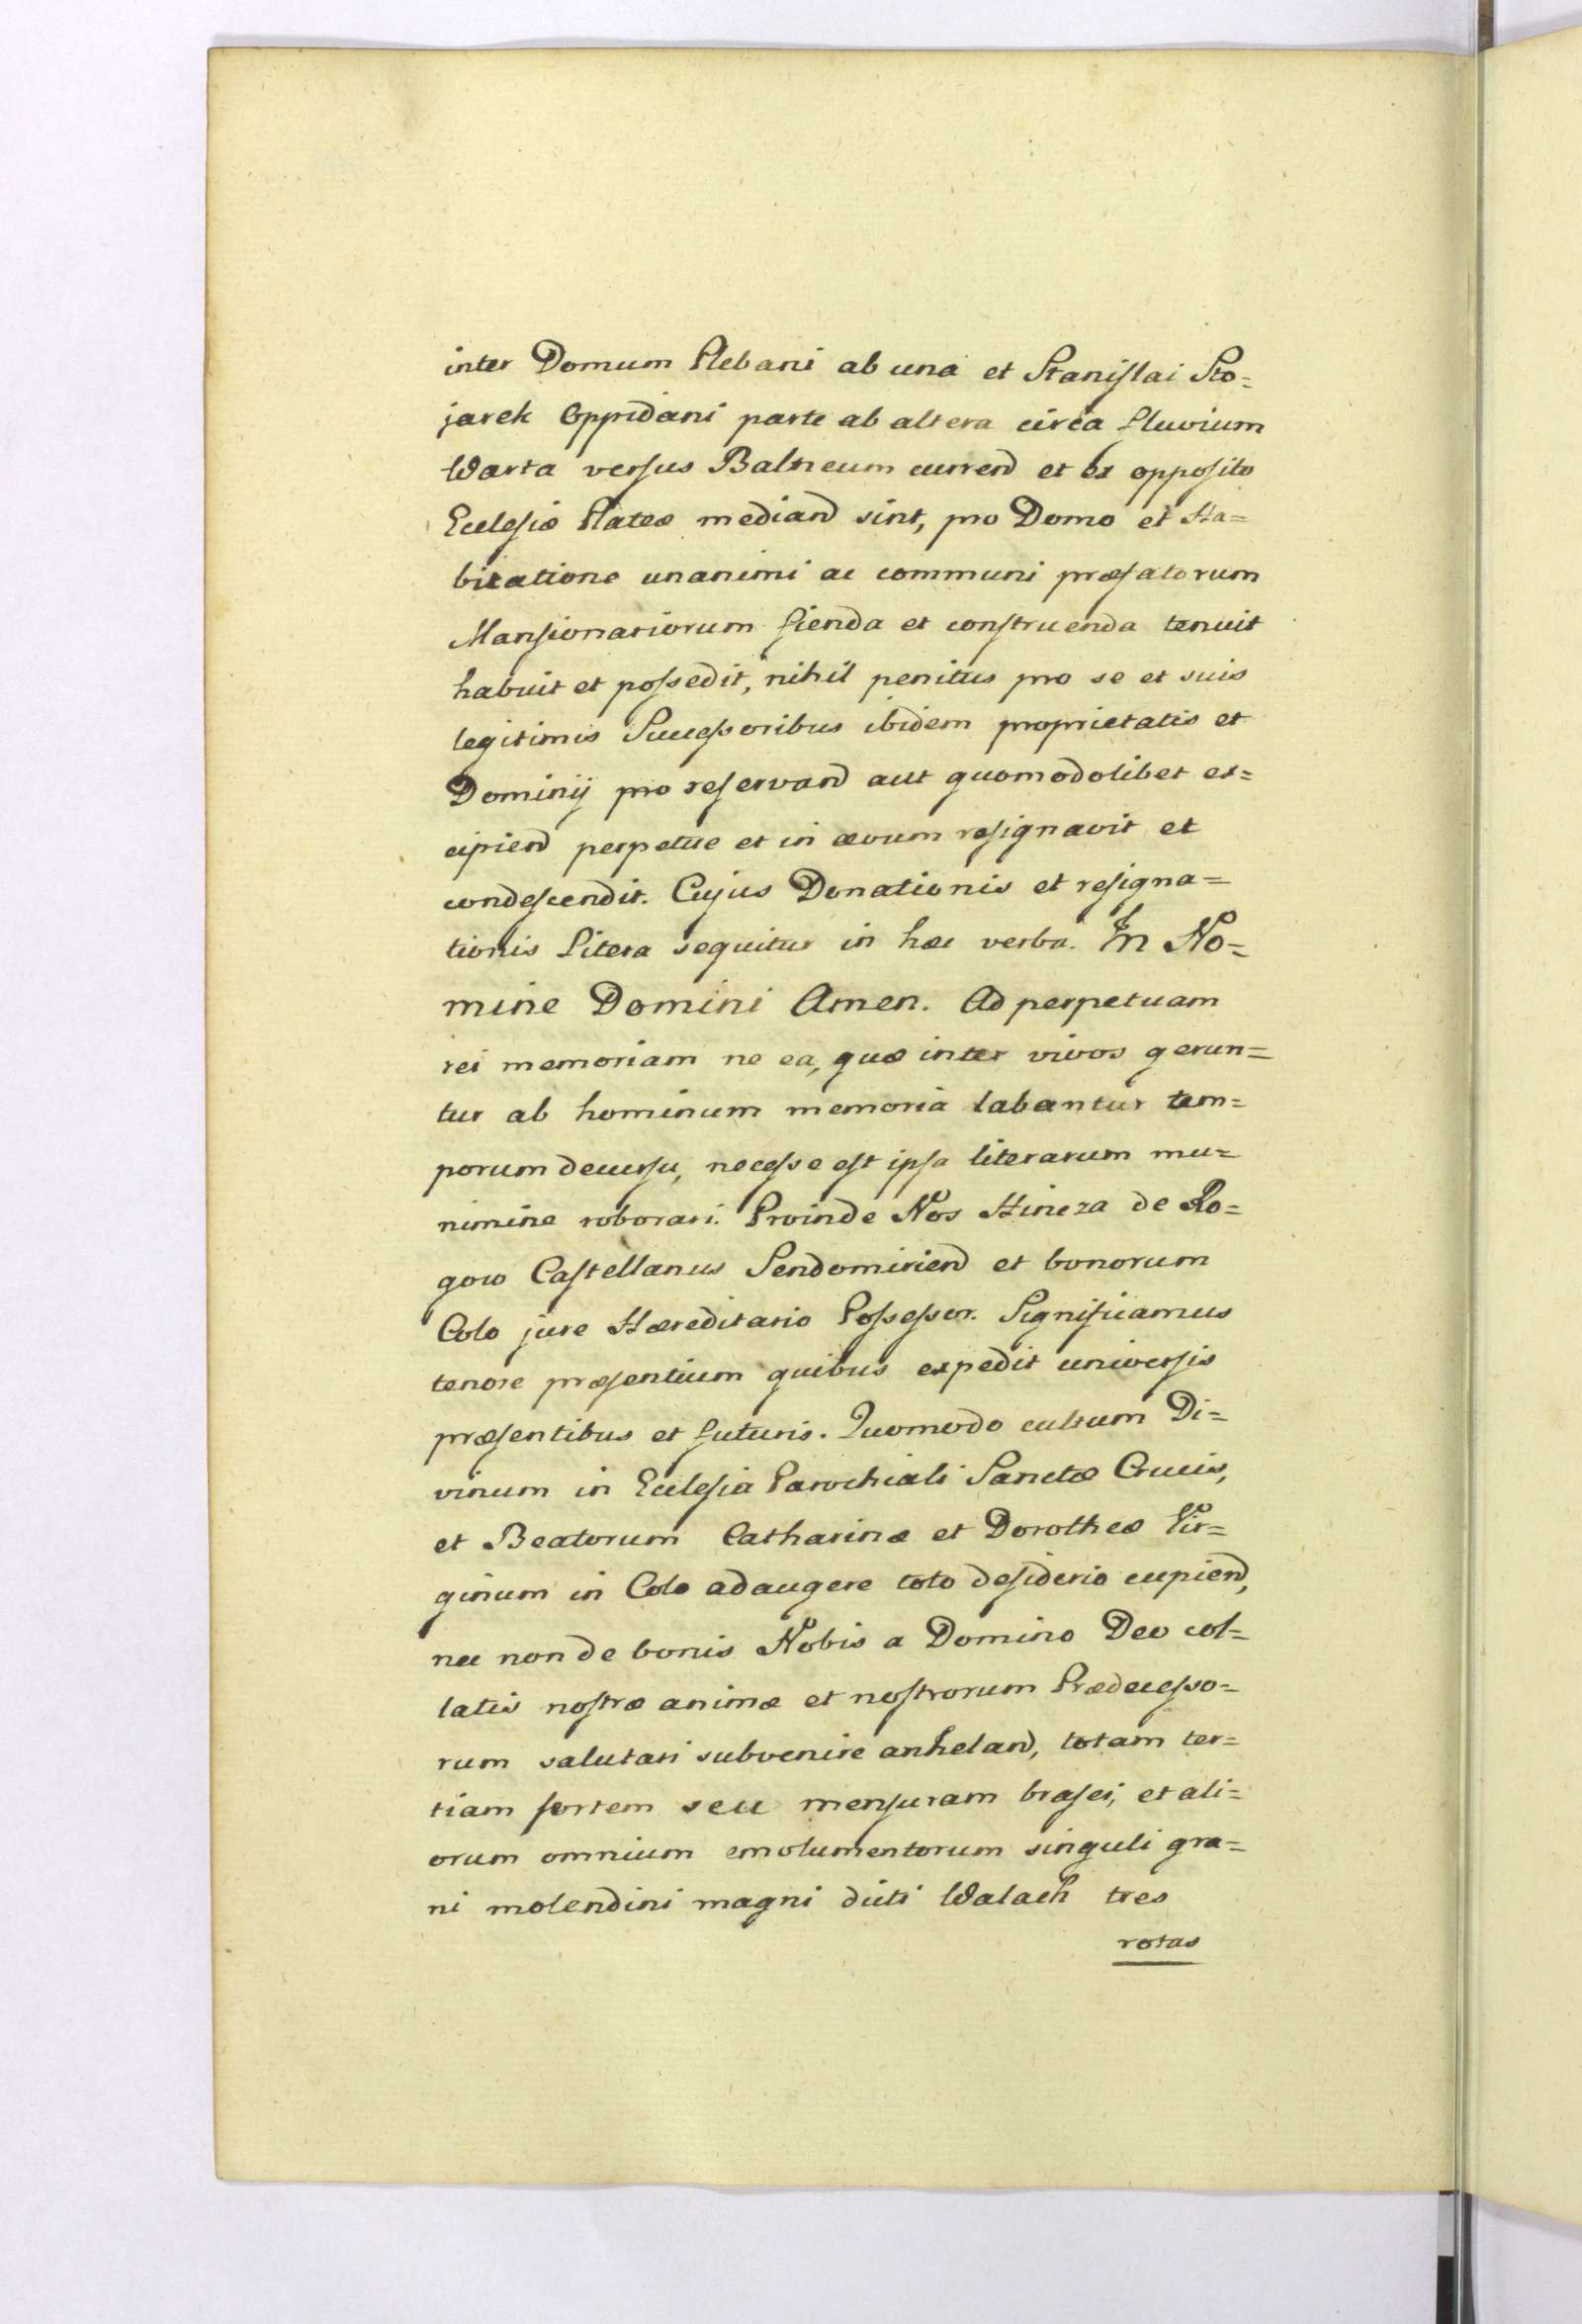 inter Domum Plebani ab una et Stanislai Sto=
jarek Oppidani parte ab altera circa fluvium
Warta versus Balneum currend et ex opposito
Ecclesiæ Plateæ mediand sint, pro Domo et Ha=
bitatione unanimi ac communi præfatorum
Mansionariorum fienda et construenda tenuit
habuit et possedit, nihil penitus pro se et suis
legitimis Successoribus ibidem proprietatis et
Dominij pro reservand aut quomodolibet ex=
cipiend perpetue et in ævum resignavit et
condescendit. Cujus Donationis et resigna=
tionis Litera sequitur in hæc verba. In No=
mine Domini Amen. Ad perpetuam
rei memoriam ne ea, quæ inter vivos gerun=
tur ab hominum memoria labantur tem=
porum decursu, necesse est ipsa literarum mu=
nimine roborari. Proinde Nos Hincza de Ro=
gow Castellanus Sendomiriend et bonorum
Colo jure Hæreditario Possessor. Significamus
tenore præsentium quibus expedit universis
præsentibus et futuris. Quomodo cultum Di=
vinum in Ecclesia Parochiali Sanctæ Crucis,
et Beatorum Catharinæ et Dorotheæ Vir=
ginum in Colo adaugere toto desiderio cupiend,
nec non de bonis Nobis a Domino Deo col=
latis nostræ animæ et nostrorum Prædecesso=
rum salutari subvenire anheland, totam ter=
tiam sortem seu mensuram brasei, et ali=
orum omnium emolumentorum singuli gra=
ni molendini magni dicti Walach tres
rotas